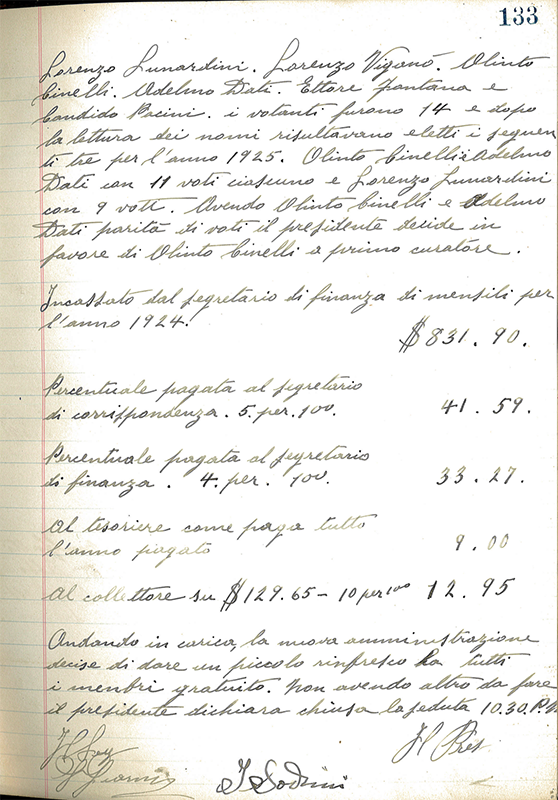 133
Lorenzo Lunardini. Lorenzo Viganó. Olinto
Cinelli. Adelmo Dati. Ettore Fontana e
Candido Pacini. i votanti furono 14 e dopo
la lettura dei nomi risultavano eletti i seguen
ti tre per l'anno 1925. Olinto Cinelli e Adelmo
Dati con 11 voti ciascuno e Lorenzo Lunardini
con 9 voti. Avendo Olinto Cinelli e Adelmo
Dati parità di voti il presidente decide in
favore di Olinto Cinelli a primo curatore.
Incassato dal segretario di finanza di mensili per
l'anno 1924.
$831.90.
Percentuale pagata al segretario
di corrispondenza. 5. per. 100. 41.59.
Percentuale pagata al segretario
di finanza. 4. per. 100. 33.27.
Al tesoriere come paga tutto
l'anno pagato 9.00
Al collettore su $129.65 - 10 per 100 12.95
Andando in carica, la nuova amministrazione
decise di dare un piccolo rinfresco ha tutti
i menbri gratuito. Non avendo altro da fare
il presidente dichiara chiusa la seduta 10.30. P.M.
Il Seg Il Pres